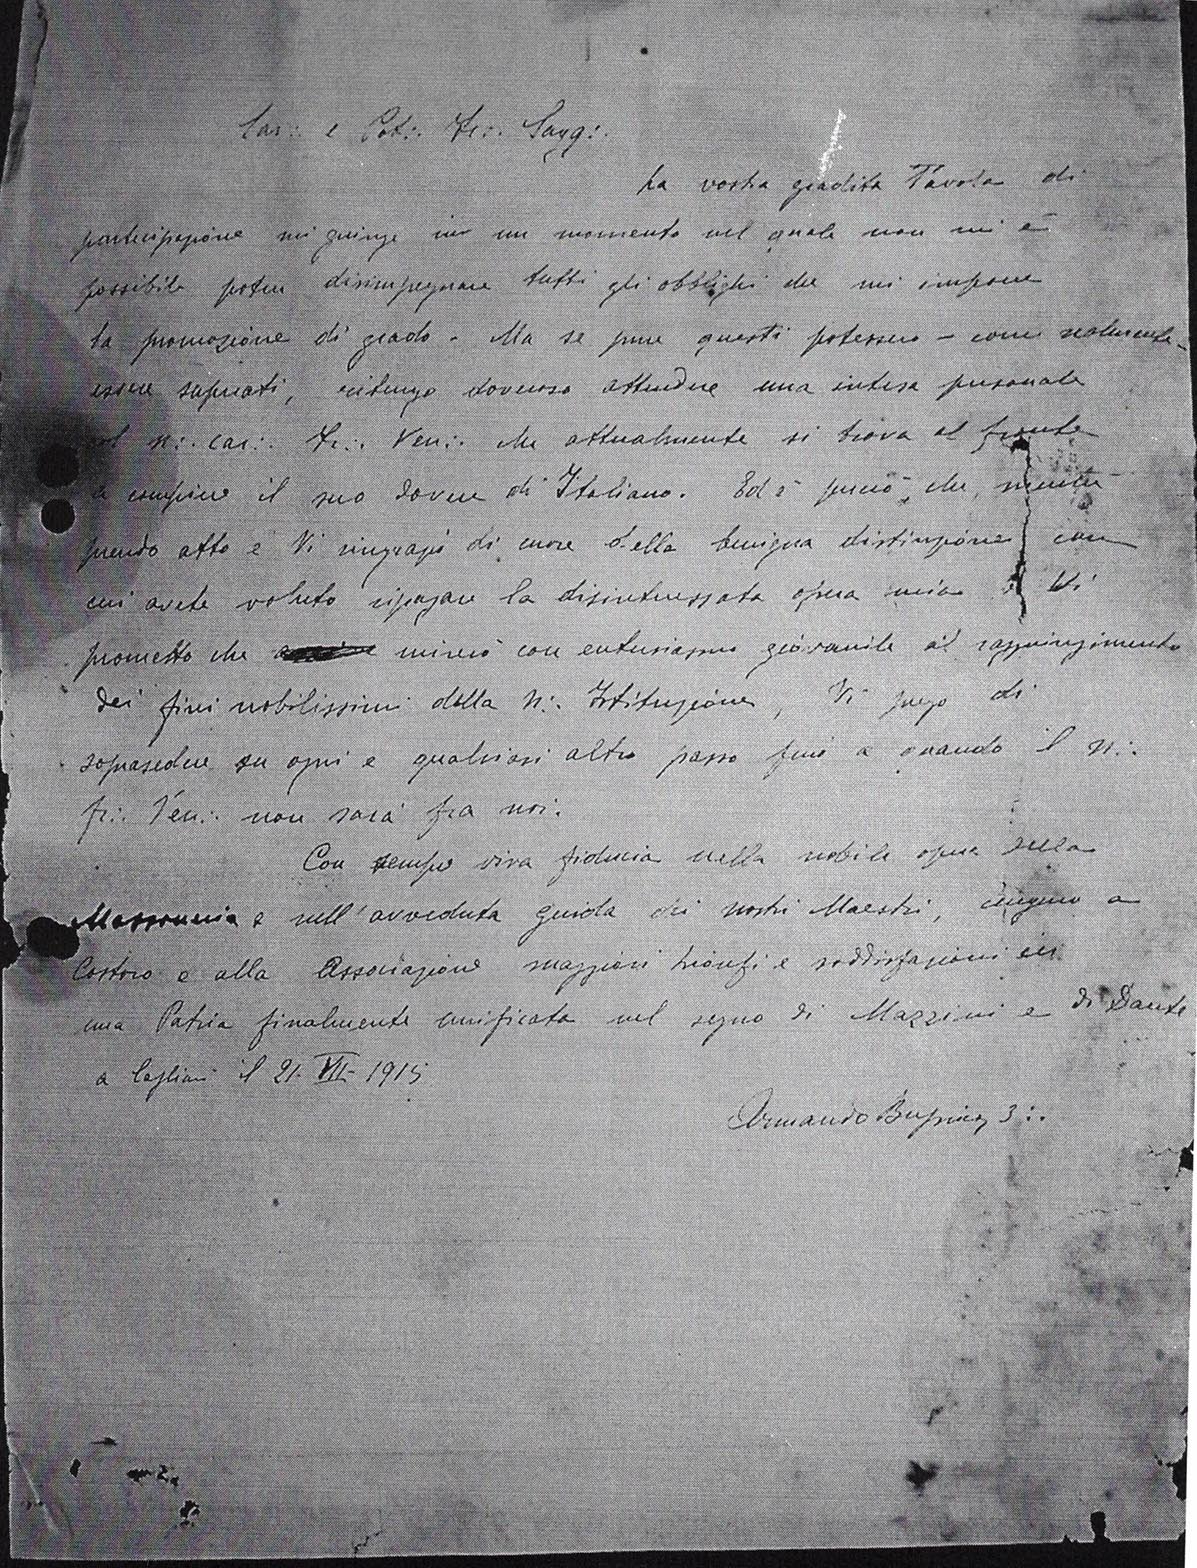 Car∴ e Pot∴ Fr∴ Sagg∴
La vostra gradita Tavola di
partecipazione mi giunge in un momento nel quale non mi è
possibile poter disimpegnare tutti gli obblighi che mi impone
la promozione di grado. Ma se pure questi potessero – come
essere superati, ritengo doveroso attendere una intesa personale
col n∴ car∴ Fr∴ Ven∴ che attualmente si trova al fronte
a compiere il suo dovere di Italiano. Ed è perciò, che, mentre
prendo atto e Vi ringrazio di cuore della benigna distinzione con
cui avete voluto ripagare la disinteressata opera mia e Vi
prometto che mirerò con entusiasmo giovanile al raggiungimento
dei fini nobilissimi della N∴ Istituzione, Vi prego di
soprasedere su ogni e qualsiasi altro passo fino a quando il N∴
fr∴ Ven∴ non sarà fra noi.
Con sempre viva fiducia nella nobile opera della
Massoneria e nell'avveduta guida dei nostri Maestri, auguro a
Costoro e alla Associazione maggiori trionfi e soddisfazioni in
una Patria finalmente unificata nel segno di Mazzini e di Dante
a Cagliari il 21 VII 1915
Armando 3∴